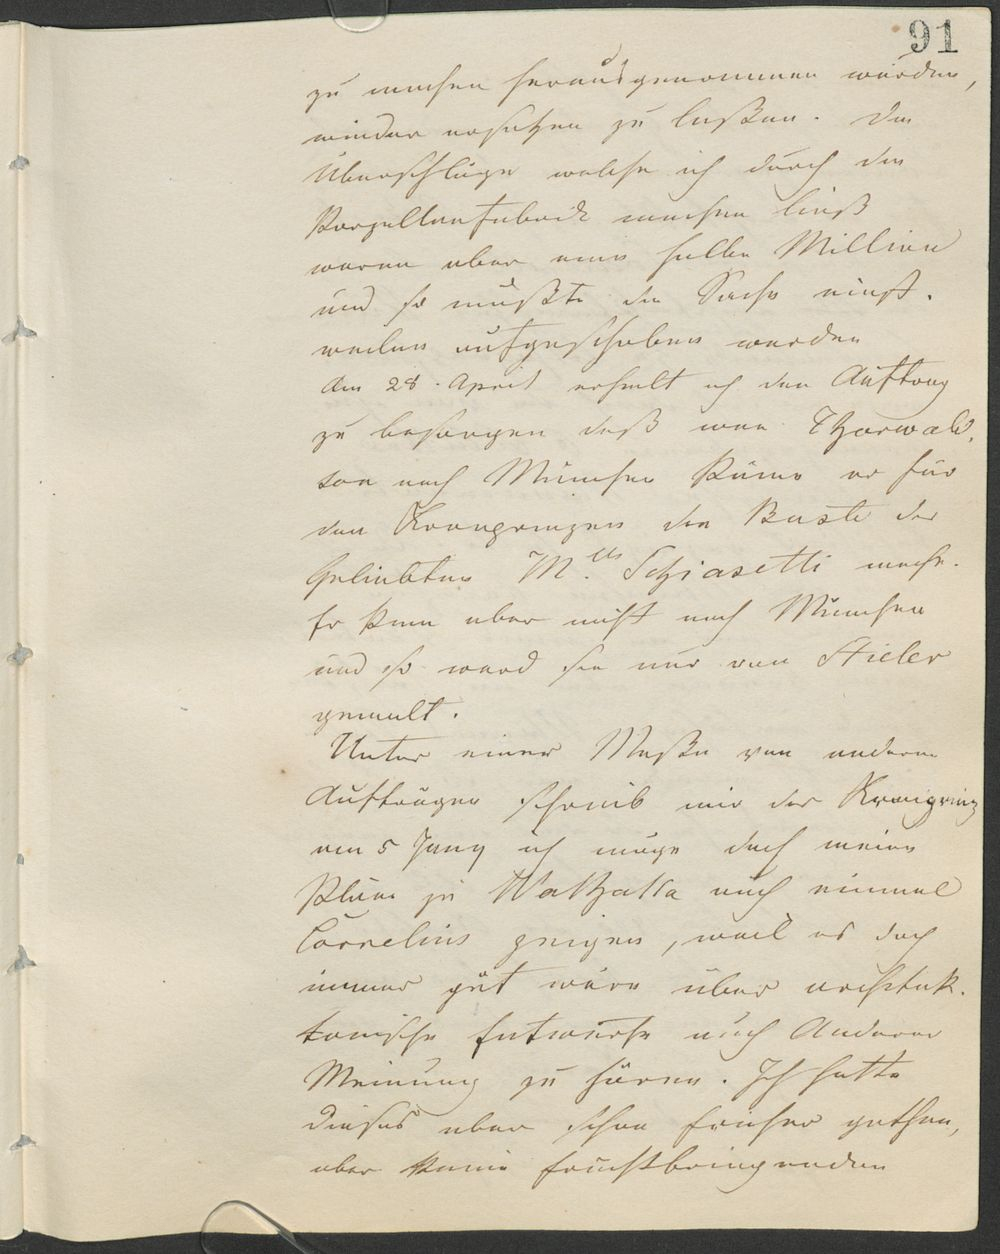 91
zu machen herausgenommen wurden,
wieder ersetzen zu laßen. Die
Überschläge welche ich durch die
Porzellanfabrik machen ließ
waren über eine halbe Million
und so mußte die Sache einst-
weilen aufgeschoben werden
Am 28. April erhielt ich den Auftrag
zu besorgen daß wenn Thorwald-
son nach München käme er für
den Kronprinzen die Buste der
Geliebten M.lle Schiasetti mache.
Er kam aber nicht nach München
und so ward sie nur von Stieler
gemalt.
Unter einer Maße von anderen
Aufträgen schrieb mir der Kronprinz
am 5 Juny ich möge doch meine
Pläne zu Walhalla auch einmal
Cornelius zeigen, weil es doch
immer gut wäre über architek-
tonische Entwürfe auch Anderer
Meinung zu hören. Ich hatte
dieses aber schon früher gethan,
aber keine fruchtbringenden